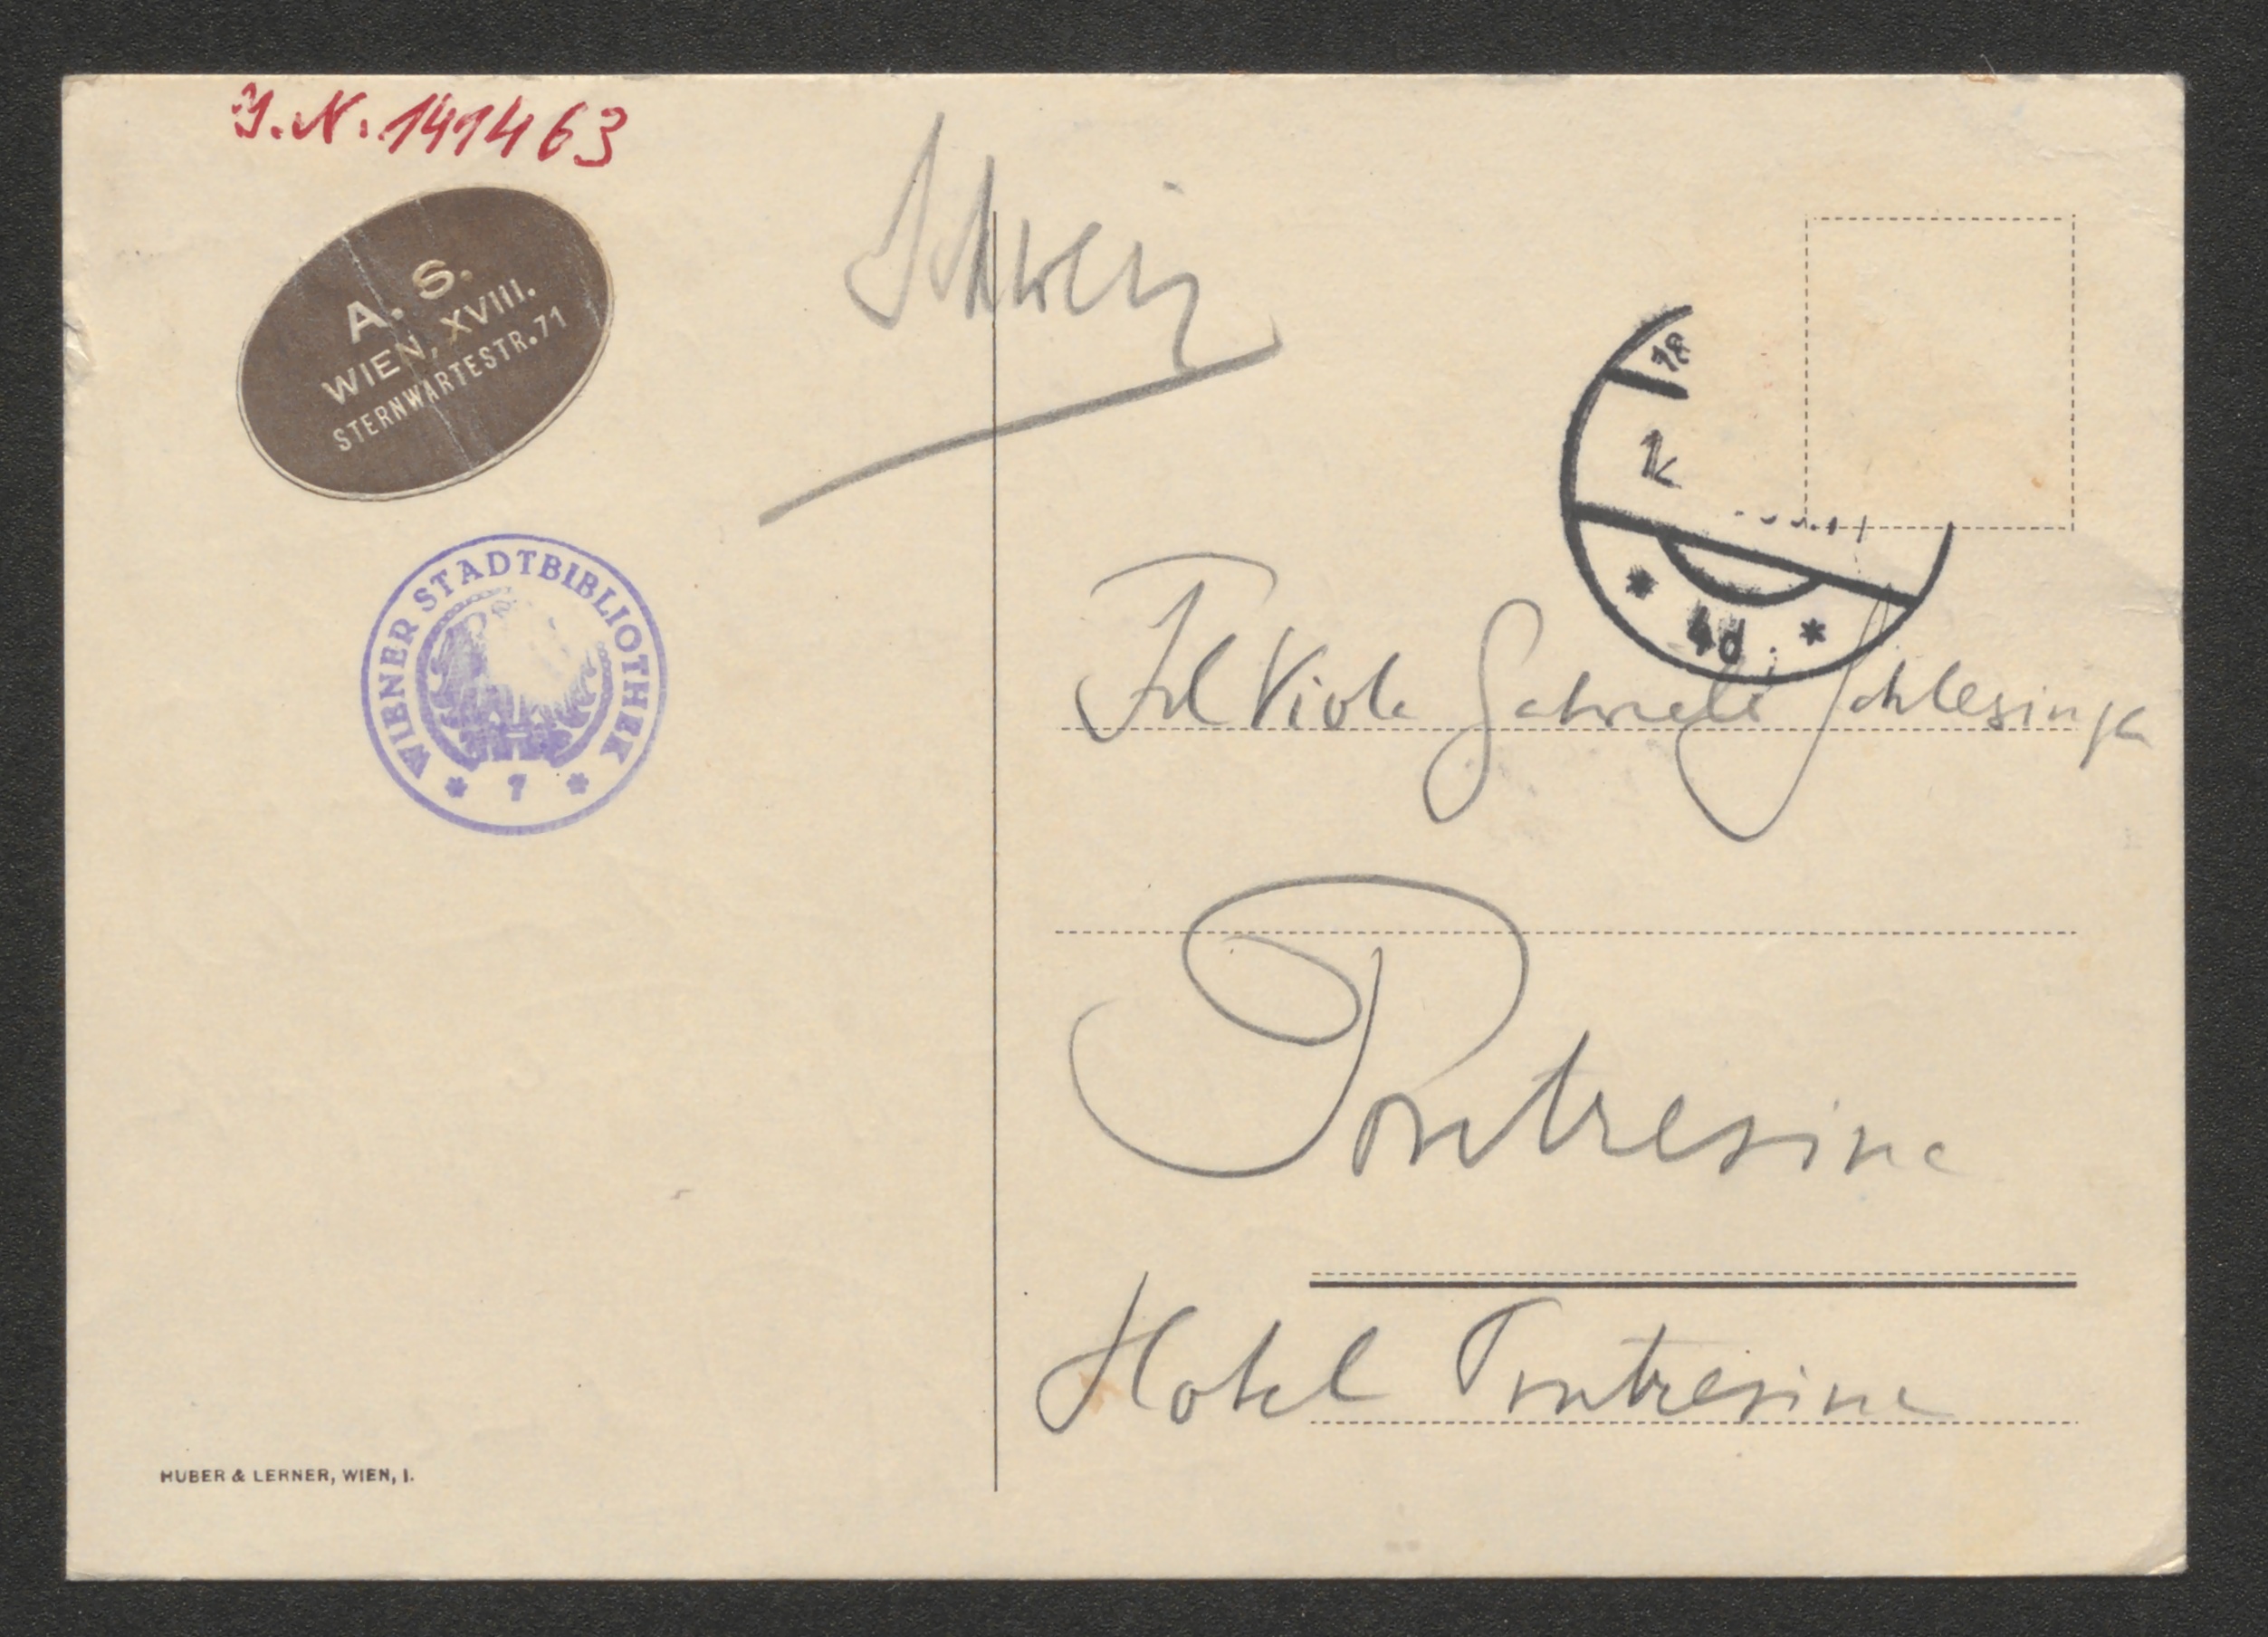 J.N. 141463
A. S.
WIEN, XVIII.
STERNWARTESTR. 71
Schweiz
18
WIENER STADTBIBLIOTHEK
* 7 *
* 4d. *
Frl Viola Gabriele Schlesinger
Pontresina
Hotel Pontresina
HUBER & LERNER, WIEN, I.